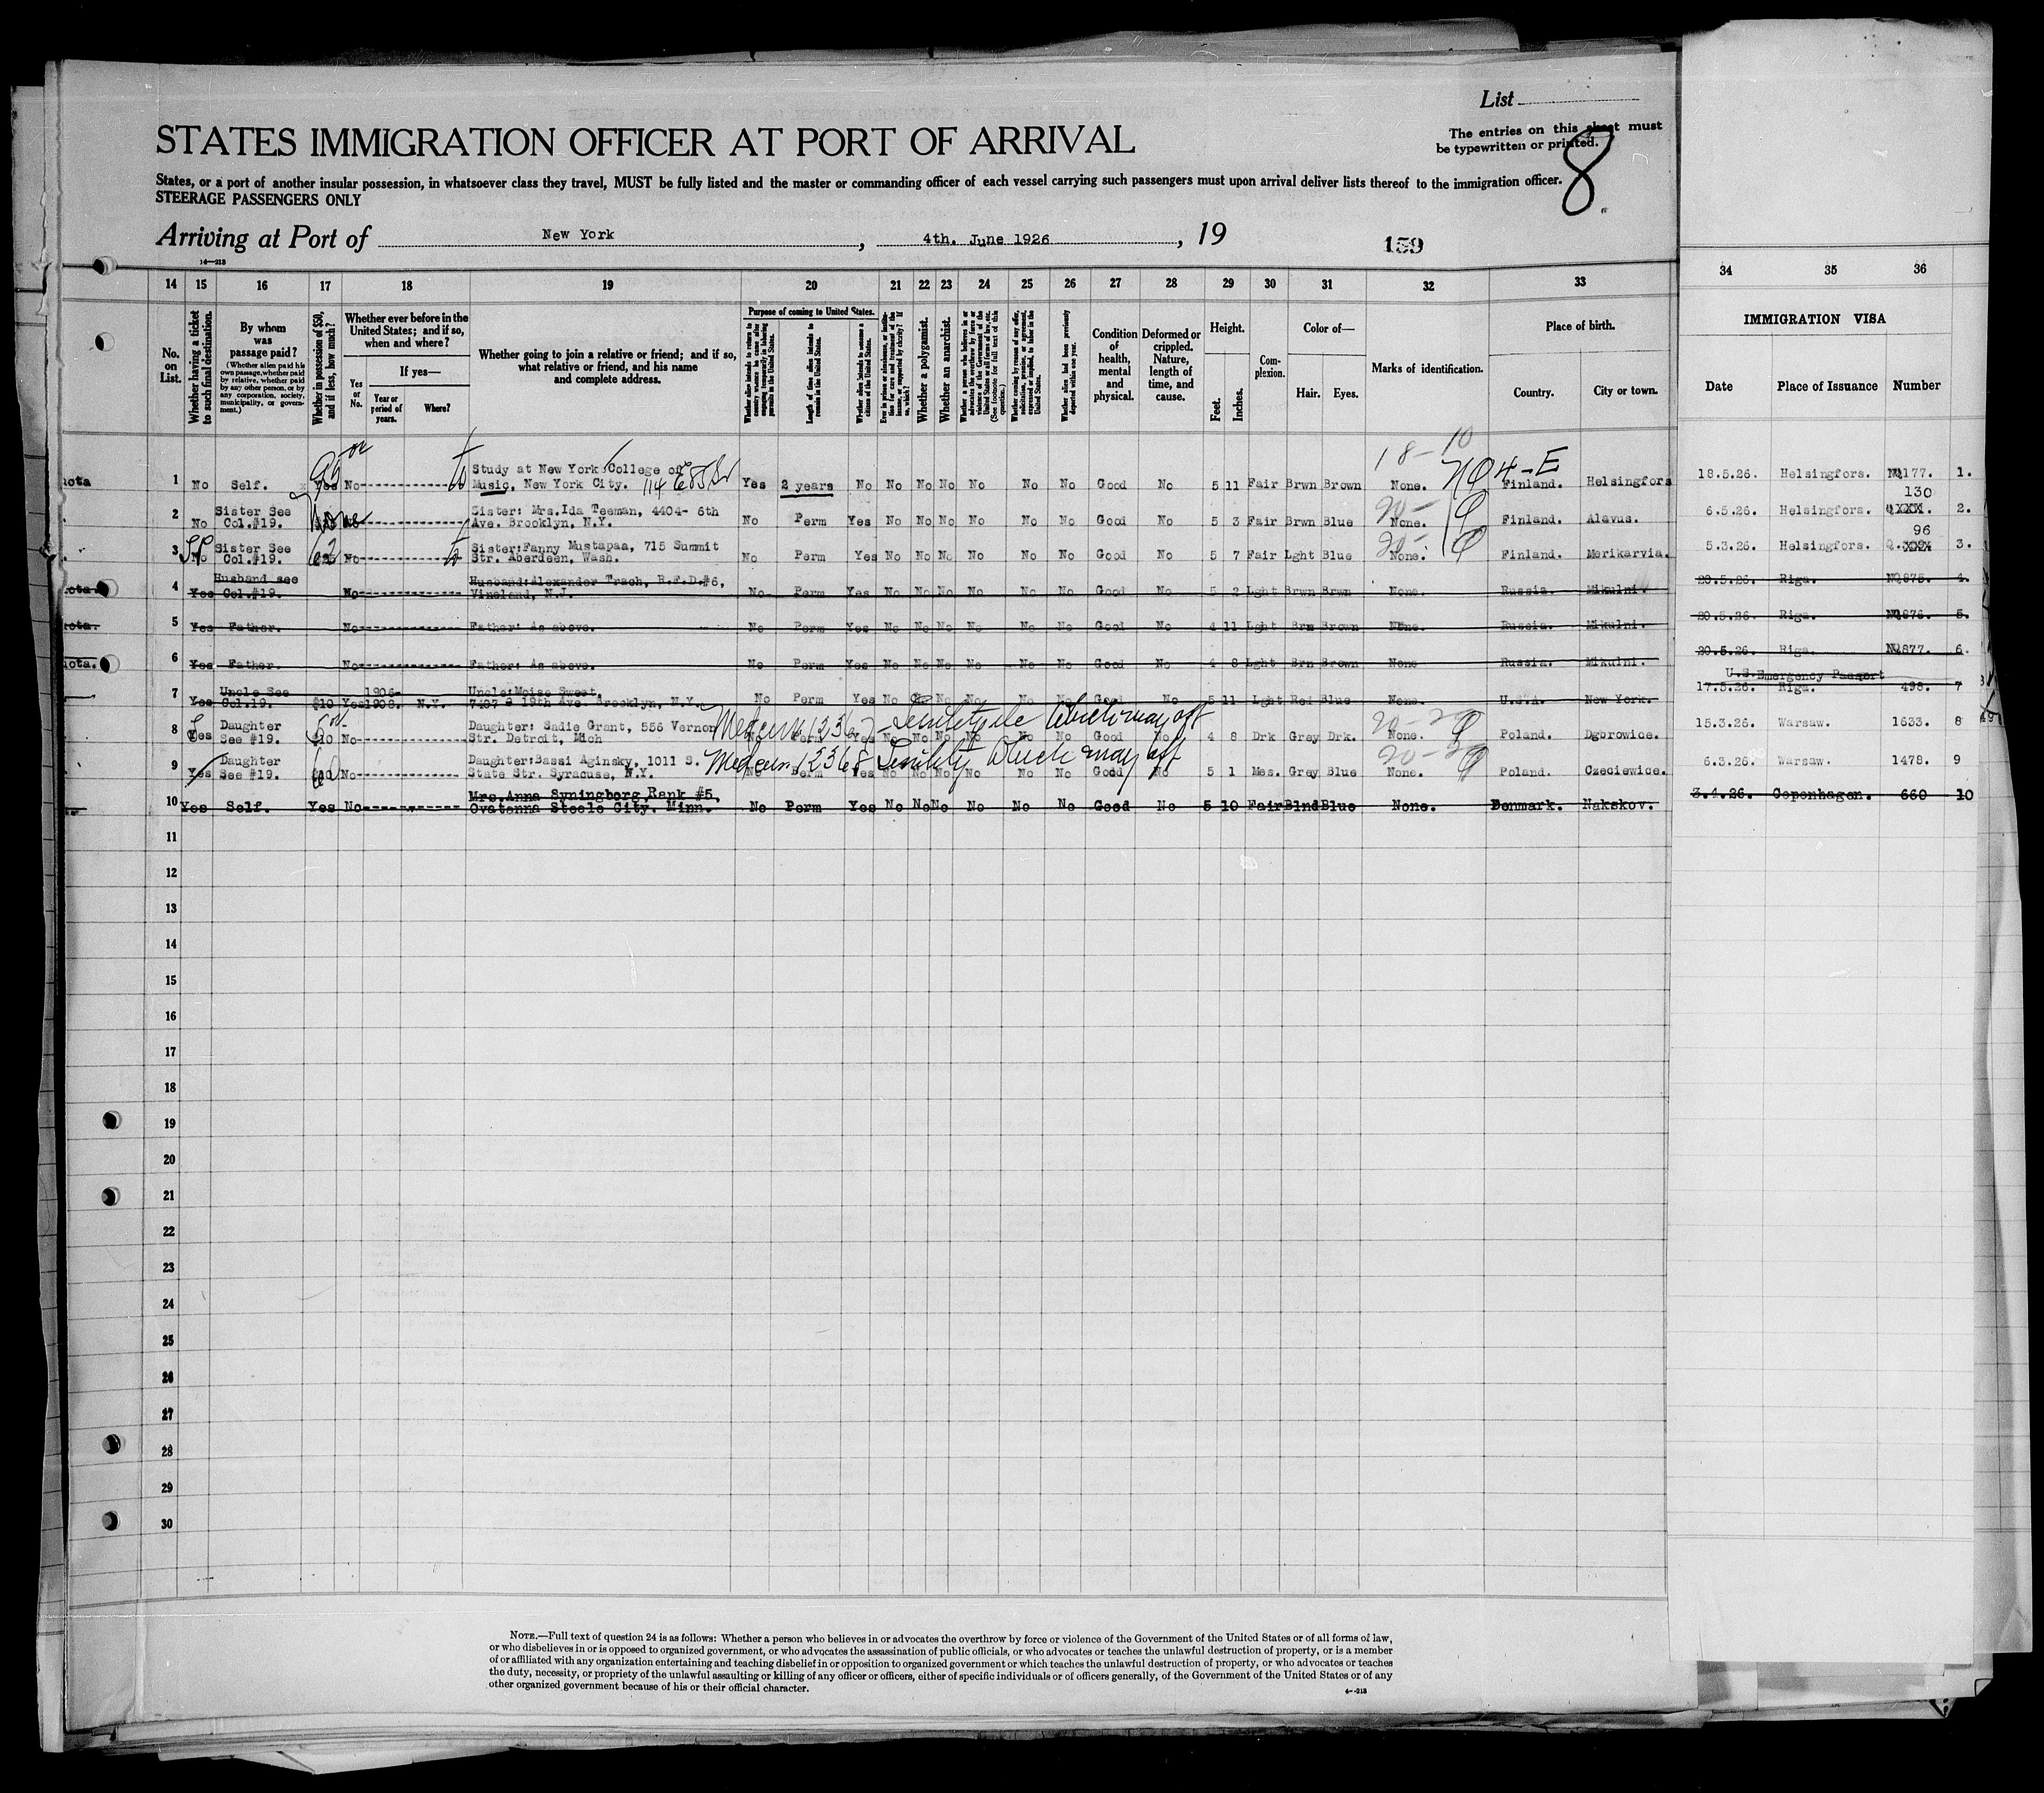 List
The entries on this sheet must
be typewritten or printed.
8
STATES IMMIGRATION OFFICER AT PORT OF ARRIVAL
States, or a port of another insular possession, in whatsoever class they travel, MUST be fully listed and the master or commanding officer of each vessel carrying such passengers must upon arrival deliver lists thereof to the immigration officer.
STEERAGE PASSENGERS ONLY
Arriving at Port of New York, 4th. June 1926, 19
159
14—213
14 15 16 17 18 19 20 21 22 23 24 25 26 27 28 29 30 31 32 33 34 35 36
No. on List.
Whether having a ticket to such final destination.
By whom was passage paid?
(Whether alien paid his own passage, whether paid by relative, whether paid by any other person, or by any corporation, society, municipality, or government.)
Whether in possession of $50, and if less, how much?
Whether ever before in the United States; and if so, when and where?
Yes or No.
If yes—
Year or period of years.
Where?
Whether going to join a relative or friend; and if so, what relative or friend, and his name and complete address.
Purpose of coming to United States.
Whether alien intends to return to country whence he came after engaging temporarily in laboring pursuits in the United States.
Length of time alien intends to remain in the United States.
Whether alien intends to become a citizen of the United States.
Whether a polygamist.
Whether an anarchist.
Whether alien had been previously deported within one year.
Condition of health, mental and physical.
Deformed or crippled. Nature, length of time, and cause.
Height.
Feet.
Inches.
Complexion.
Color of—
Hair. Eyes.
Marks of identification.
Place of birth.
Country. City or town.
IMMIGRATION VISA
Date Place of Issuance Number
18-10
1 No Self. Yes No Study at New York College of Music, New York City. 114 E 85 St Yes 2 years No No No No No No No Good No 5 11 Fair Brwn Brown None. Finland. Helsingfors 18.5.26. Helsingfors. NQ177. 1.
2 No Sister See Col.#19. Sister: Mrs.Ida Teeman, 4404- 6th Ave. Brooklyn, N.Y. No Perm Yes No No No No No No Good No 5 3 Fair Brwn Blue None. Finland. Alavus. 6.5.26. Helsingfors. 130 2.
3 No Sister See Col.#19. No Sister:Fanny Mustapaa, 715 Summit Str. Aberdeen, Wash. No Perm Yes No No No No No No Good No 5 7 Fair Lght Blue None. Finland. Merikarvia. 5.3.26. Helsingfors. 96 3.
4 Yes Husband see Col.#19. No Husband:Alexander Trach, R.F.D.#6, Vineland, N.J. No Perm Yes No No No No No No Good No 5 2 Lght Brwn Brwn None. Russia. Mikulni. 20.5.26. Riga. NQ875. 4.
5 Yes Father. No Father: As above. No Perm Yes No No No No No No Good No 4 11 Lght Brn Brown None. Russia. Mikulni. 20.5.26. Riga. NQ876. 5.
6 Yes Father. No Father: As above. No Perm Yes No No No No No No Good No 4 8 Lght Brn Brown None Russia. Mikulni. 20.5.26. Riga. NQ877. 6.
U.S.Emergency Passport
7 Yes Uncle See Col.19. $10 Yes 1906-1908. N.Y. Uncle:Moise Sweet, 7407 - 19th Ave. Brooklyn, N.Y. No Perm Yes No No No No No No Good No 5 11 Lght Red Blue None. U.S.A. New York. 17.5.26. Riga. 498. 7
8 Yes Daughter See #19. $10 No Daughter: Sadie Grant, 556 Vernon Str. Detroit, Mich No Perm Yes No No No No No No Good No 4 8 Drk Grey Drk. None. Poland. Dgbrowice. 15.3.26. Warsaw. 1633. 8
9 Yes Daughter See #19. No Daughter:Bassi Aginsky, 1011 S. State Str. Syracuse, N.Y. No Perm Yes No No No No No No Good No 5 1 Mes. Grey Blue None. Poland. Czeciewice. 6.3.26. Warsaw. 1478. 9
10 Yes Self. Yes No Mrs.Anna Syningborg Rank #5, Ovatenna Steele City. Minn. No Perm Yes No No No No No No Good No 5 10 Fair Blnd Blue None. Denmark. Nakskov. 3.4.26. Copenhagen. 660 10
11
12
13
14
15
16
17
18
19
20
21
22
23
24
25
26
27
28
29
30
NOTE.—Full text of question 24 is as follows: Whether a person who believes in or advocates the overthrow by force or violence of the Government of the United States or of all forms of law,
or who disbelieves in or is opposed to organized government, or who advocates the assassination of public officials, or who advocates or teaches the unlawful destruction of property, or is a member
of or affiliated with any organization entertaining and teaching disbelief in or opposition to organized government or which teaches the unlawful destruction of property, or who advocates or teaches
the duty, necessity, or propriety of the unlawful assaulting or killing of any officer or officers, either of specific individuals or of officers generally, of the Government of the United States or of any
other organized government because of his or their official character.